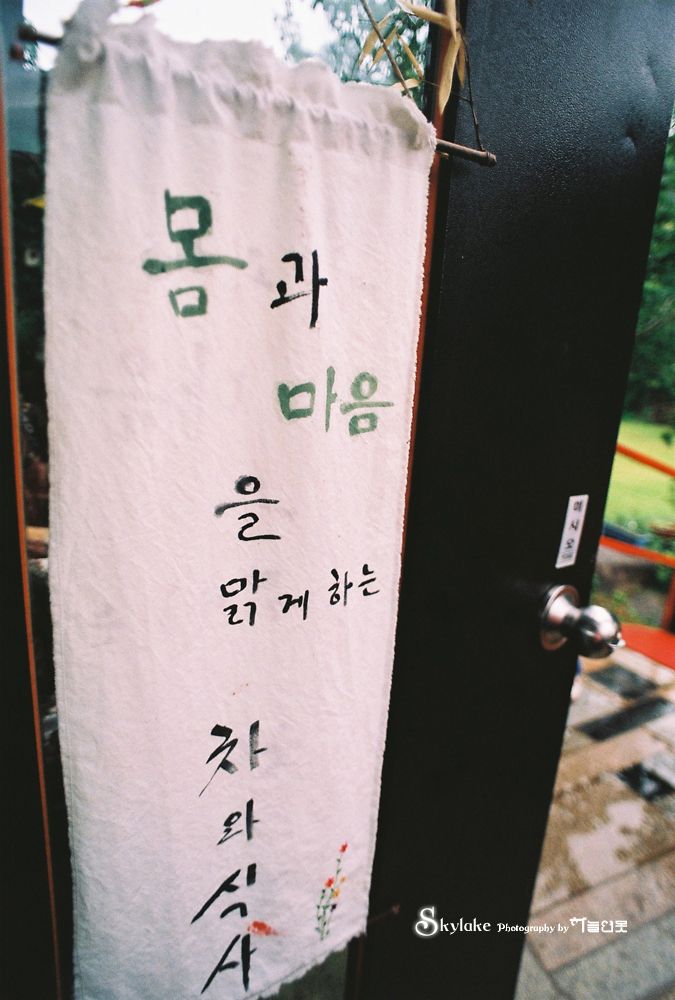 몸과
마음
을
맑게 하는
차
와
식
사
미시오
Skylake Photography by 하늘연못